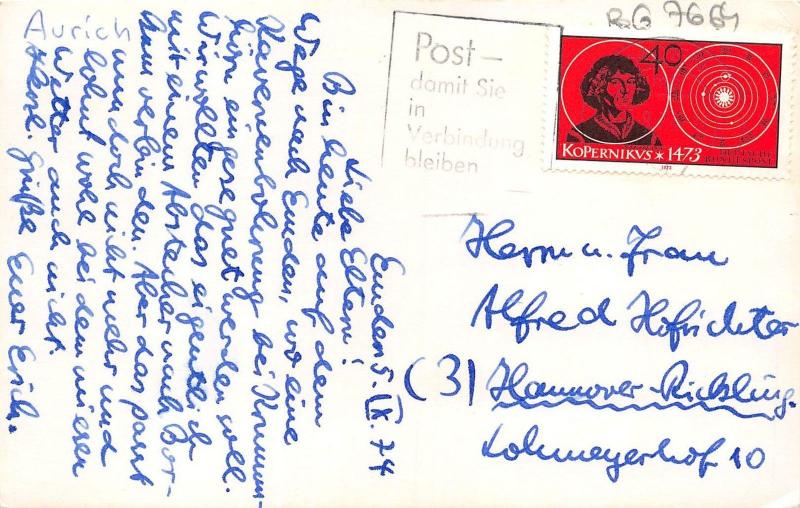 Aurich
RG 7664
Post –
damit Sie
in
Verbindung
bleiben
40
KOPERNIKVS * 1473
DEUTSCHE
BUNDESPOST
1973
Emden 5. IX. 74
Liebe Eltern!
Bin heute auf dem
Wege nach Emden, wo eine
Kavernenbohrung bei Krumm-
hörn eingesegnet werden soll.
Wir wollten das eigentlich
mit einem Abstecher nach Bor-
kum verbinden. Aber das passt
nun doch nicht mehr und
lohnt wohl bei dem miesen
Wetter auch nicht.
Herzl. Grüße Euer Erich.
Herrn u. Frau
Alfred Hofrichter
(3) Hannover-Rickling.
Lohmeyerhof 10